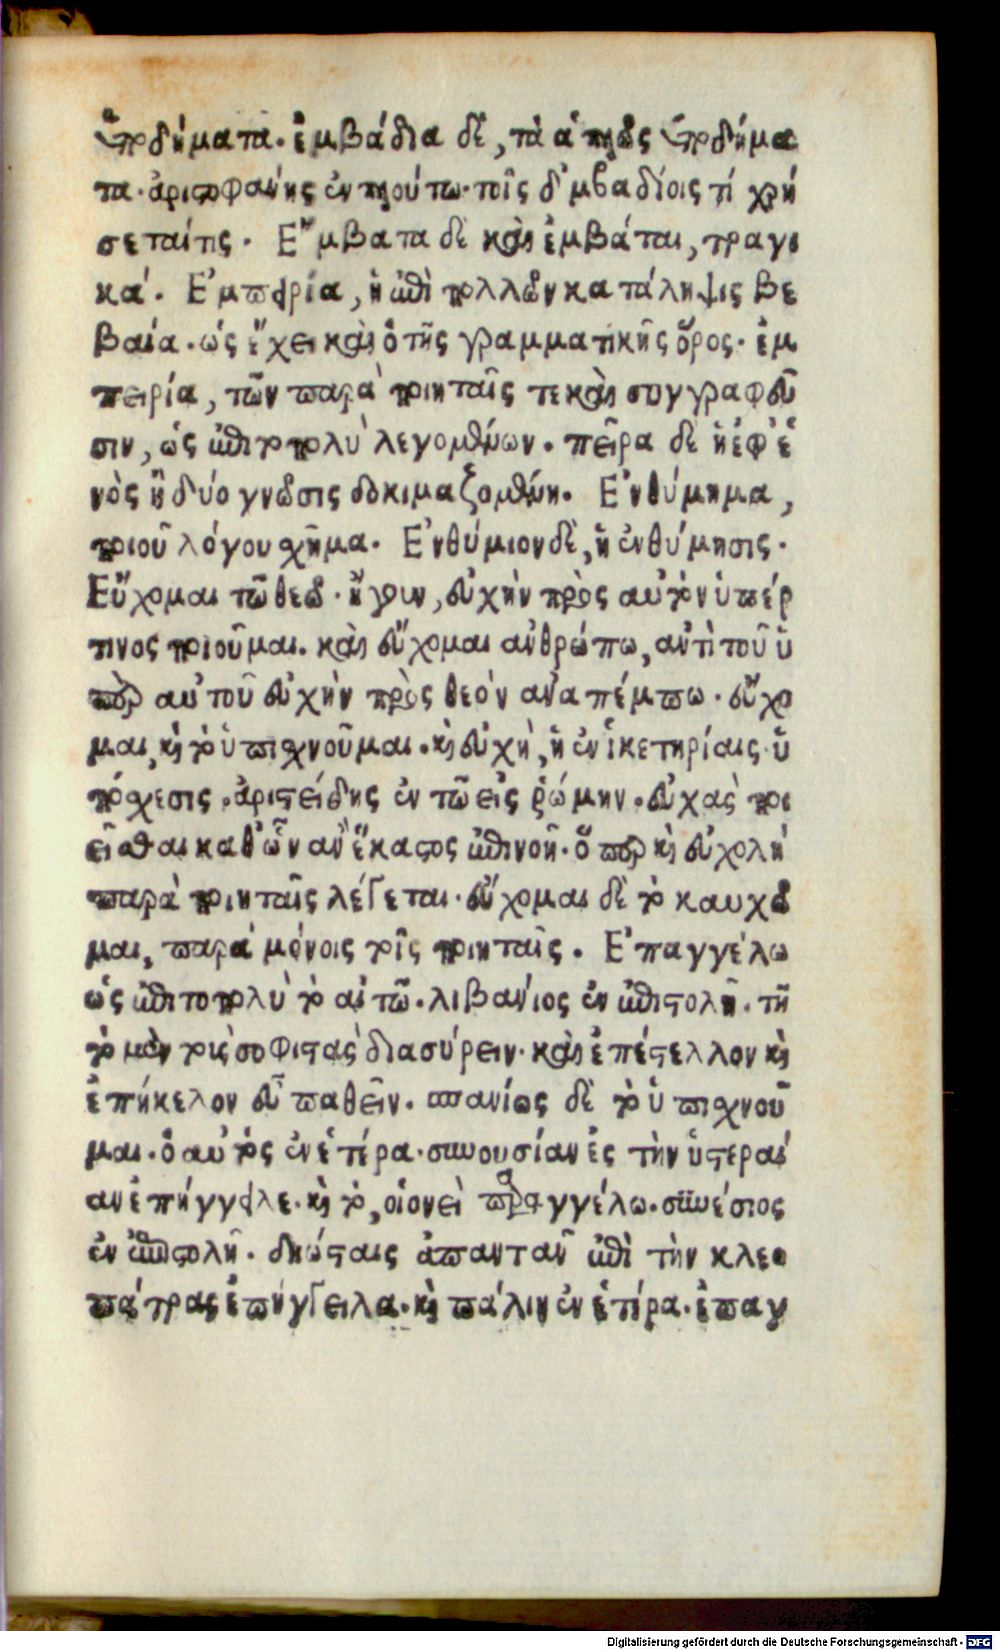 ὑποδήματα. ἐμβάδια δὲ, τὰ ἁπλῶς ὑποδήμα
τα. ἀριστοφάνης ἐν πλούτω. τοῖς δ' ἐμβαδίοις τί χρή
σεταί τις. Ἔμβατα δὲ καὶ ἐμβάται, τραγι
κά. Ἐμπειρία, ἡ ἐπὶ πολλῶν κατάληψις βε
βαία. ὡς ἔχει καὶ ὁ τῆς γραμματικῆς ὅρος. ἐμ
πειρία, τῶν παρὰ ποιηταῖς τε καὶ συγγραφεῦ
σιν, ὡς ἐπὶ τοπολὺ λεγομένων. πεῖρα δὲ ἡ ἐφ' ἑ
νὸς ἢ δύο γνῶσις δοκιμαζομένη. Ἐνθύμημα,
ποιοῦ λόγου σχῆμα. Ἐνθύμιον δὲ, ἡ ἐνθύμησις.
Εὔχομαι τῶ θεῶ. ἤγουν, εὐχὴν πρὸς αὐτὸν ὑπέρ
τινος ποιοῦμαι. καὶ εὔχομαι ἀνθρώπω, ἀντὶ τοῦ ὑ
πὲρ αὐτοῦ εὐχὴν πρὸς θεὸν ἀναπέμπω. εὔχο
μαι, κὶ τὸ ὑπισχνοῦμαι. κὶ εὐχὴ, ἡ ἐν ἱκετηρίαις ὑ
πόσχεσις. ἀριστείδης ἐν τῶ εἰς ῥώμην. εὐχὰς ποι
εῖσθαι καθ' ὧν ἂν ἕκαστος ἐπινοῆ. ὅπερ κὶ εὐχολὴ
παρὰ ποιηταῖς λέγεται. εὔχομαι δὲ τὸ καυχῶ
μαι, παρὰ μόνοις τοῖς ποιηταῖς. Ἐπαγγέλω
ὡς ἐπιτοπολὺ τὸ αἰτῶ. λιβανίος ἐν ἐπιστολῆ. τῆ
τὸ μὲν τοὺς σοφιστὰς διασύρειν. καὶ ἐπέστελλον κὶ
ἐπήγγελον εὖ παθεῖν. σπανίως δὲ τὸ ὑπισχνοῦ
μαι. ὁ αὐτὸς ἐν ἑτέρα. συνουσίαν ἐς τὴν ὑστεραί
αν ἐπήγγειλε. κὶ τὸ, οἱονεὶ παραγγέλω. συνέσιος
ἐν ἐπιστολῆ. δηώσταις ἀπαντᾶν ἐπὶ τὴν κλεο
πάτρας ἐπήγγειλα. κὶ πάλιν ἐν ἑτέρα. ἐπαγ
Digitalisierung gefördert durch die Deutsche Forschungsgemeinschaft - DFG